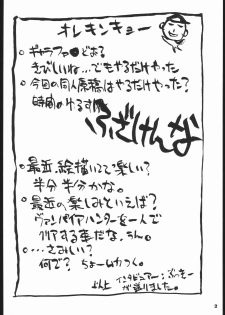 オレキンキョー
○ギャラファ○どお?
きびしいね…でもやるだけやった
○今回の同人原稿はやるだけやった?
時間のゆるす
ふざけんな
○最近、絵描いてて楽しい?
半分半分かな。
○最近の楽しみといえば?
ヴァンパイアハンターを一人で
クリアする事だな。うん。
○…さみしい?
何で? ちょームカつく。
以上 インタビュアー:
が送りました。
2